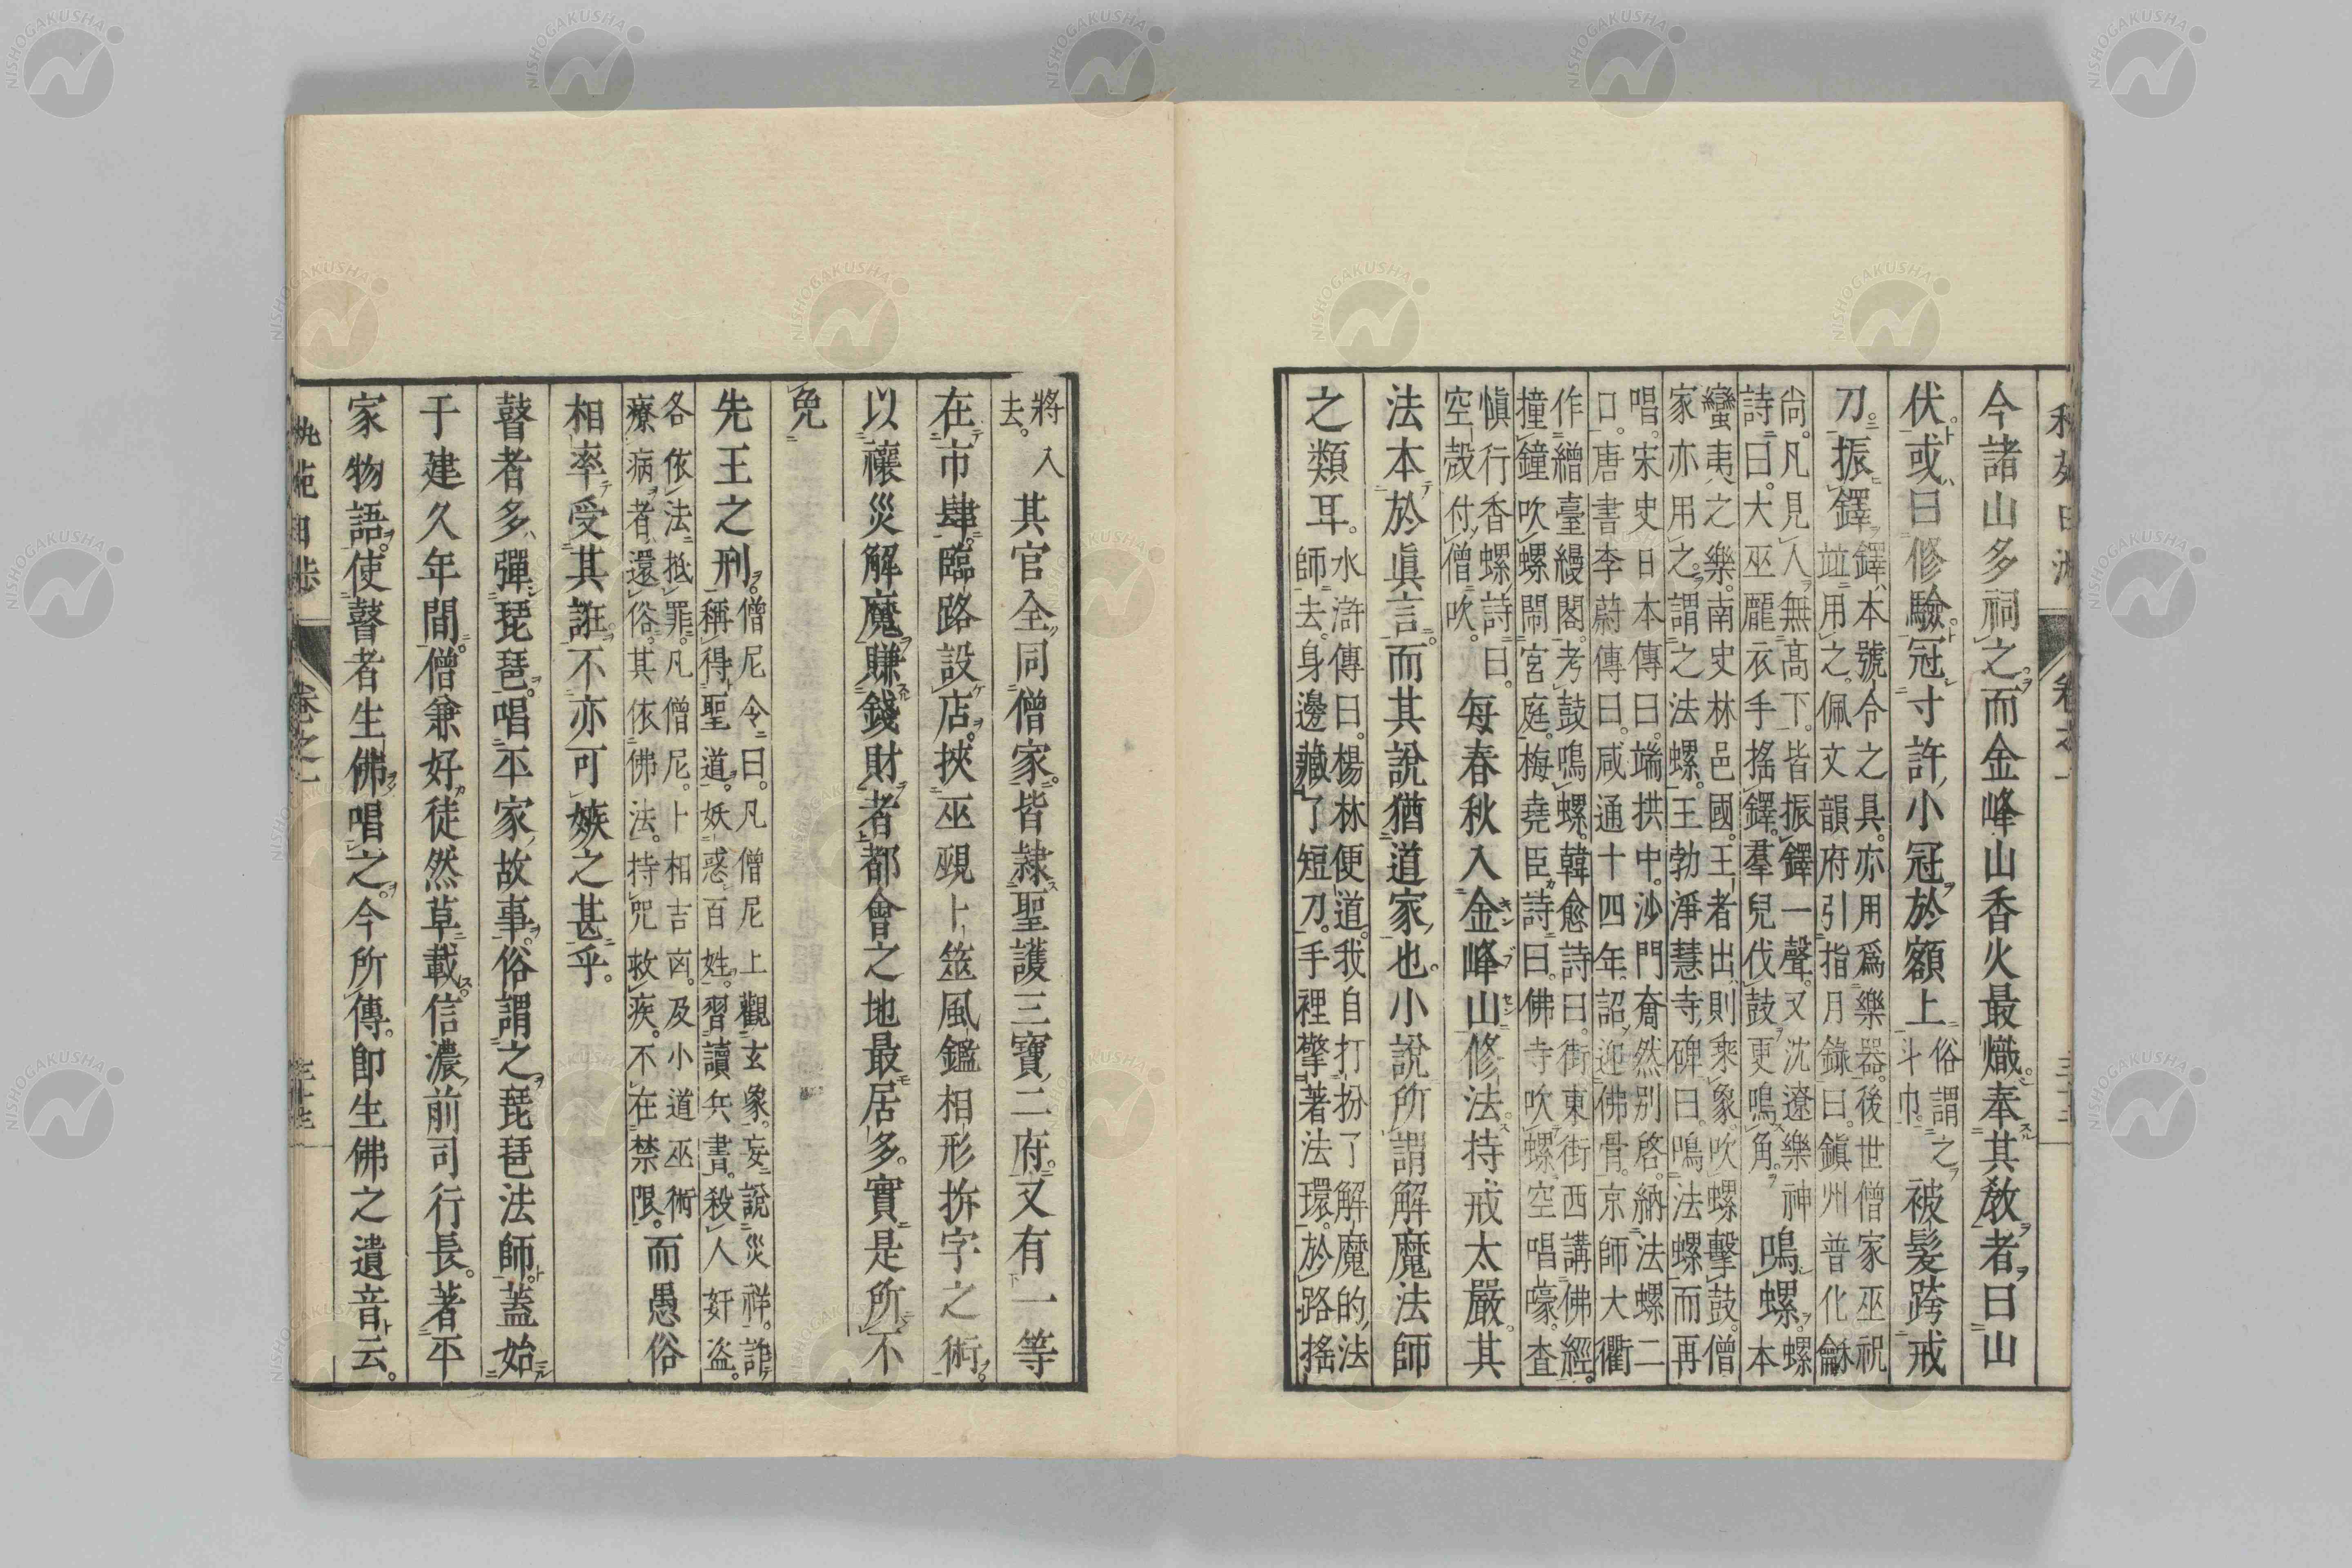 今諸山多祠之。而金峰山香火最熾。奉其教者。曰山
伏。或曰修驗。冠寸許小冠於額上俗謂之斗巾。被髮跨戒
刀。振鐸鐸本號令之具。亦用爲樂器。後世僧家巫祝竝用之。佩文韻府引指月錄曰。鎭州普化龢
尙。凡見人無高下。皆振鐸一聲。又沈遼樂神詩曰。大巫龎衣手搖鐸。羣兒伐鼓更鳴角。鳴螺。螺本
蠻夷之樂。南史林邑國。王者出則乘象。吹螺擊鼓。僧家亦用之。謂之法螺。王勃淨慧寺碑曰。鳴法螺而再
唱。宋史日本傳曰。端拱中。沙門奝然別啓。納法螺二口。唐書李蔚傳曰。咸通十四年。詔迎佛骨。京師大衢
作繒臺縵閣。考鼓鳴螺。韓愈詩曰。街東街西講佛經。撞鐘吹螺鬧宮庭。梅堯臣詩曰。佛寺吹螺空唱嚎。査
愼行香螺詩曰。空殼付僧吹。每春秋入金峰山修法。持戒太嚴。其
法本於眞言。而其說猶道家也。小說所謂解魔法師
之類耳。水滸傳曰。楊林便道。我自打扮了解魔的法師去。身邊藏了短刀。手裡擎著法環。於路搖
將入去。其官全同僧家。皆隷聖護三寶二府。又有一等
在市肆。臨路設店。挾巫覡卜筮風鑑相形拆字之術。
以禳災解魔賺錢財者。都會之地最居多。實是所不
免
先王之刑。僧尼令曰。凡僧尼上觀玄象。妄說災祥。詐稱得聖道。妖惑百姓。習讀兵書。殺人奸盜。
各依法抵罪。凡僧尼。卜相吉凶。及小道巫術療病者還俗。其依佛法。持咒救疾。不在禁限。而愚俗
相率受其誑。不亦可嫉之甚乎。
瞽者多彈琵琶。唱平家故事。俗謂之琵琶法師。蓋始
于建久年間。僧兼好徒然草載。信濃前司行長。著平
家物語。使瞽者生佛唱之。今所傳。卽生佛之遺音云。
卷之一